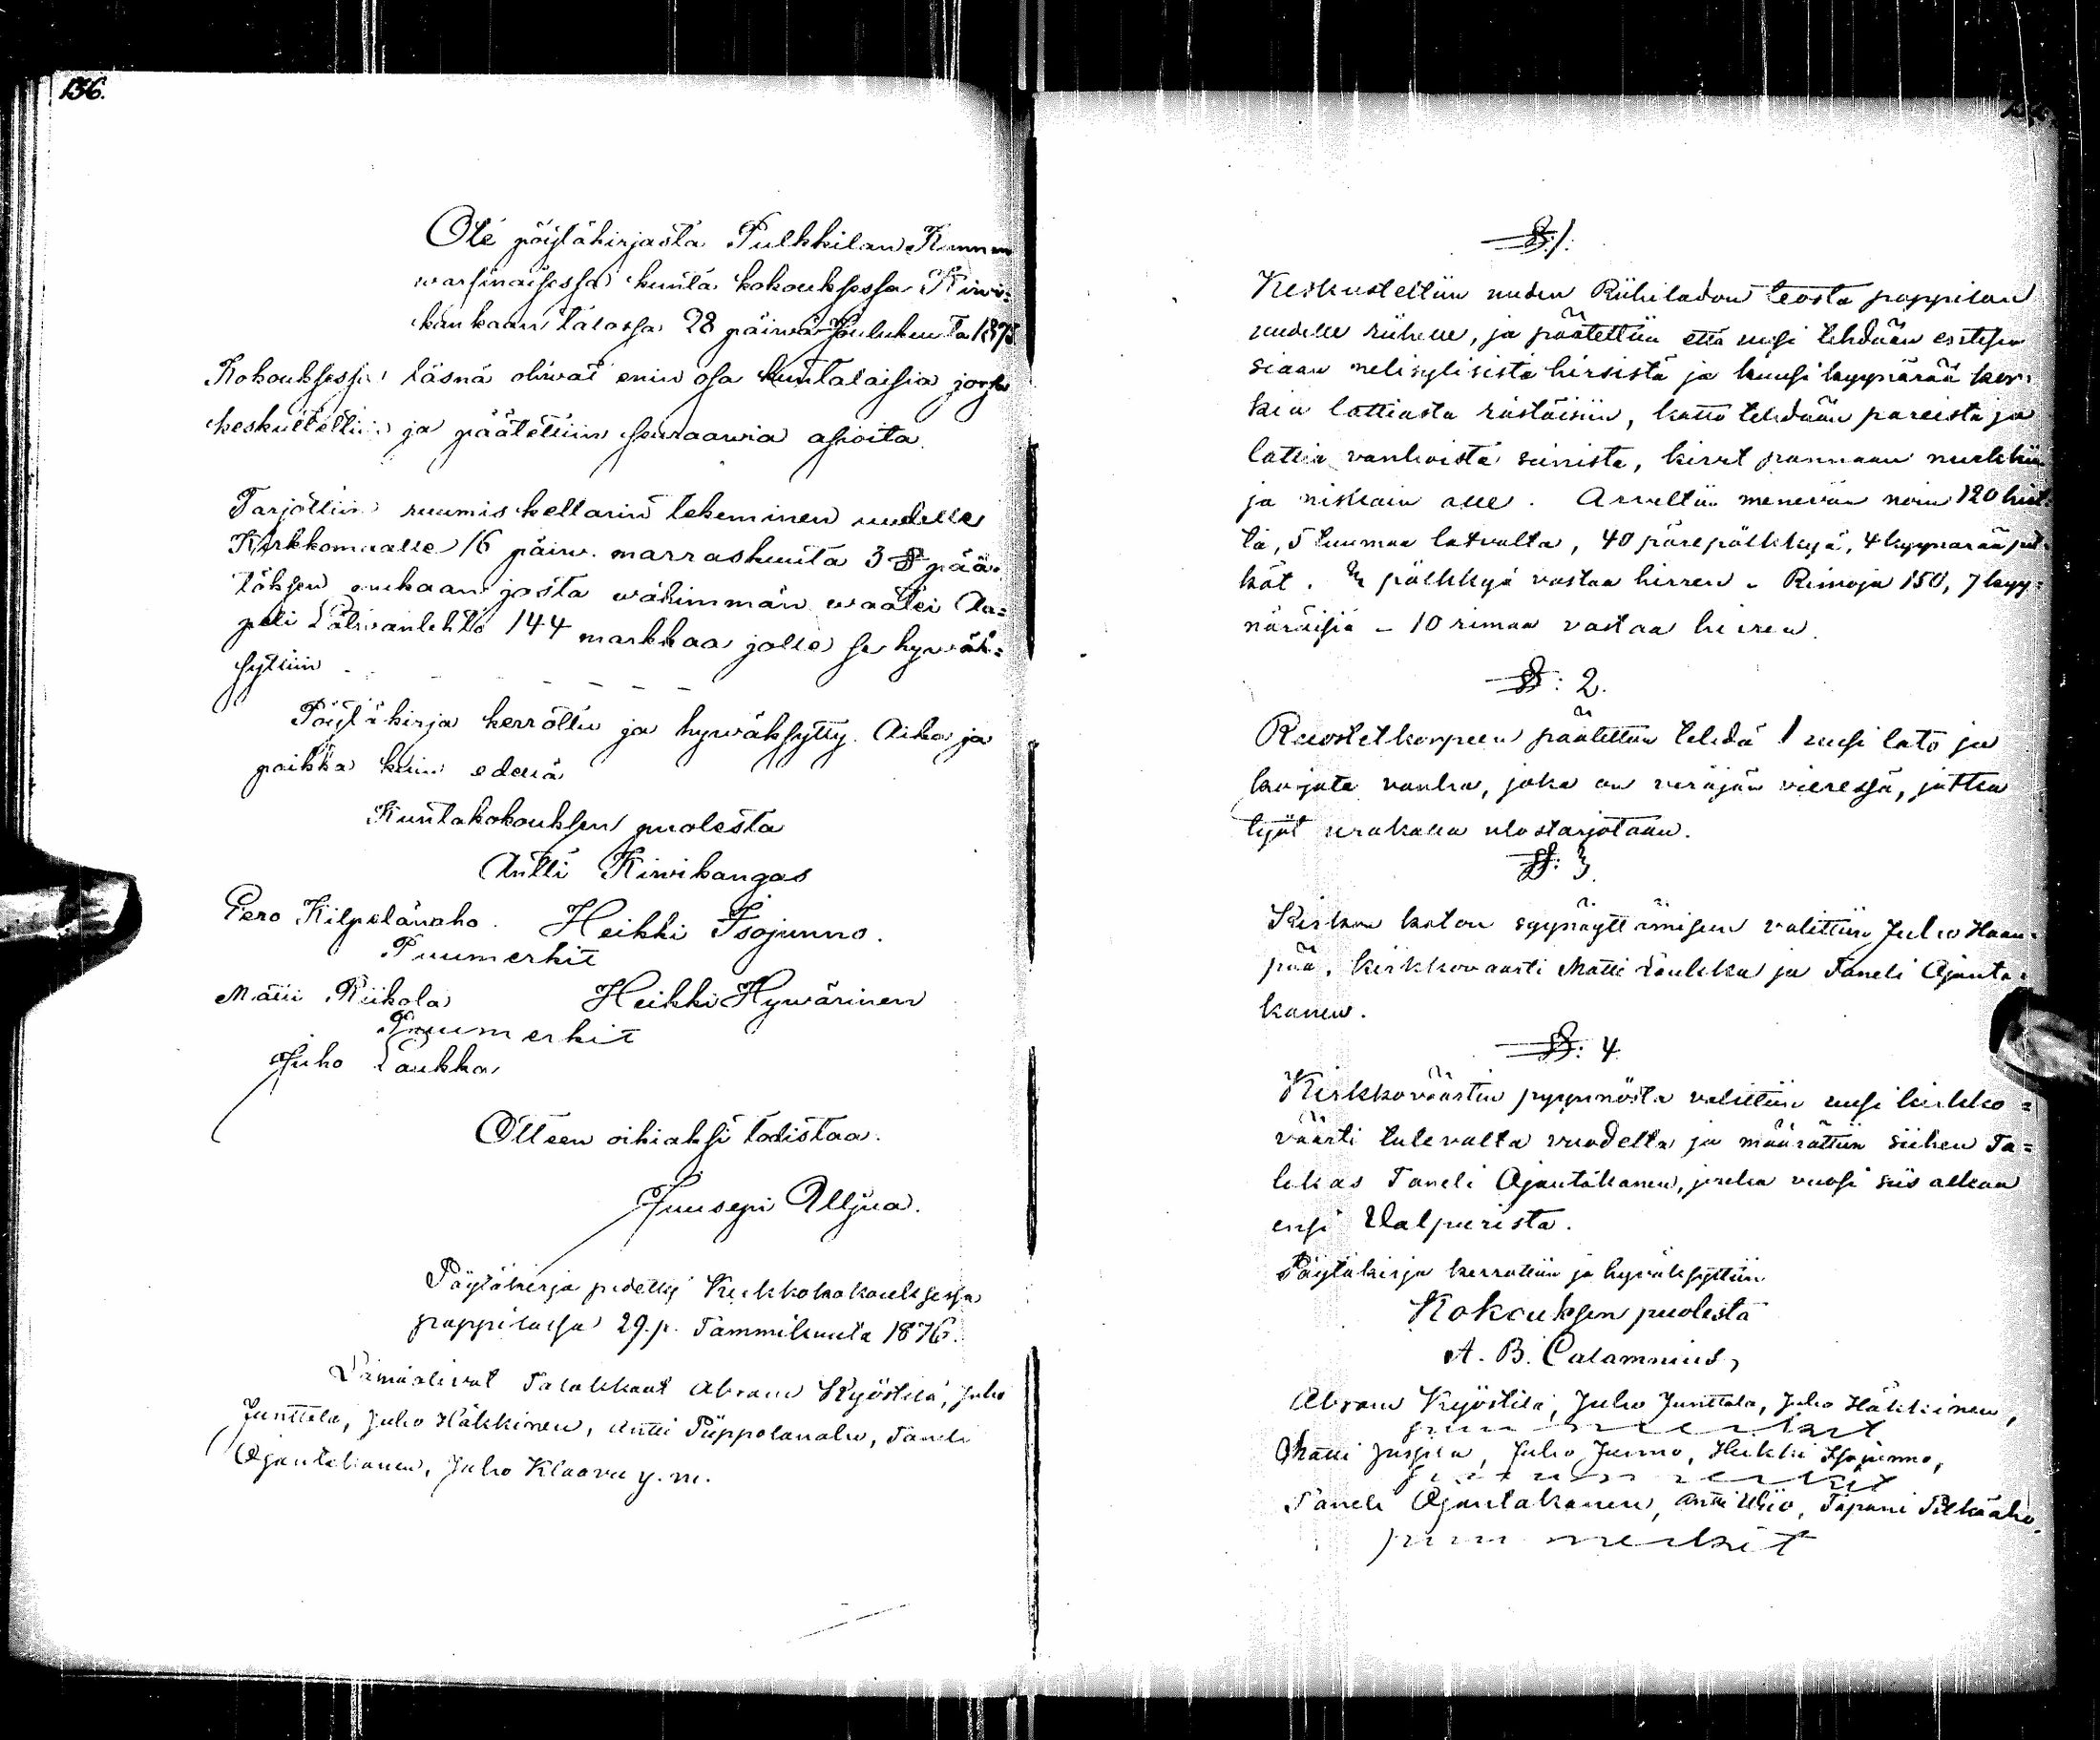 156.
Ote pöytäkirjasta Pulkkilan Kunnan
warsinaisessa kunta kokouksessa Kiwi=
kankaan talossa 28 päiwä Joulukuuta 1875
Kokouksessa läsnä oliwat enin osa kuntalaisia jossa
keskuteltiin ja päätettiin seuraawia asioita.
Tarjottiin ruumiskellarin tekeminen uudelle
Kirkkomaalle 16 päiw. marraskuuta 3 § pää=
töksen mukaan josta wähimmän waatei Aa=
peli Latwanlehto 144 markkaa jolle se hywäk=
syttiin
Pöytäkirja kerrottu ja hywäksytty. Aika ja
paikka kuin edellä
Kuntakokouksen puolesta
Antti Kiwikangas
Pero Kilpelänaho. Heikki Isojunno.
Puumerkit
Matti Riikola Heikki Hywärinen
Puumerkit
Juho Laukka
Otteen oikiaksi todistaa.
Juusepi Alljua.
Pöytäkirja pidetty Kirkkokokouksessa
pappilassa 29.p. Tammikuuta 1876.
Läsnä olivat Talokkaat Abram Kyöstilä, Juho
Junttola, Juho Häkkinen, Antti Piippolanaho, Taneli
Ojantakanen, Juho Klaavu y.m.
§: 1.
Keskusteltiin uuden Riihiladon teosta pappilan
uudelle riihelle, ja päätettiin että uusi tehdään entisen
siaan nelisylisistä hirsistä ja kuusi kyynärää kor=
kia lattiasta räståisiin, katto tehdään päreistä ja
lattia vanhoista seinistä, kivet pannaan nurkkiin
ja niskain alle. Arveltiin menevän noin 120 hirt=
tä, 5 tuumaa latvalta, 40 pärepölkkyä, 4 kyynärää pit=
kät. 2 pölkkyä vastaa hirren. Rimoja 150, 7 kyy=
näräisiä - 10 rimaa vastaa hirren.
§: 2.
Ruostetkorpeen päätettiin tehdä 1 uusi lato ja
korjata vanha, joka on veräjän vieressä, jotka
työt urakalla ulostarjotaan.
§: 3.
Kirkon katon syynäyttämiseen valittiin Juho Haan=
pää, kirkkovaarti Matti Laukka ja Taneli Ojanta=
kanen.
§: 4.
Kirkkoväärtin pyynnöstä valittiin uusi kirkko=
väärti tulevalta vuodelta ja määrättiin siihen Ta=
lokas Taneli Ojantakanen, jonka vuosi siis alkaa
ensi Valpurista.
Pöytäkirja kerrottiin ja hyväksyttiin
Kokouksen puolesta
A. B. Calamnius,
Abram Kyöstilä, Juho Junttola, Juho Häkkinen,
puumerkit
Matti Jussila, Juho Junno, Heikki Isojunno,
puumerkit
Taneli Ojantakanen, Antti Ulvo, Tapani Pitkäaho.
puumerkit